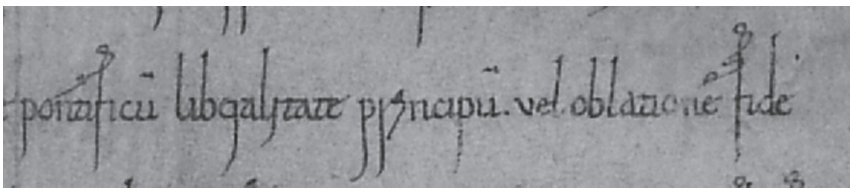 pontificū libalitate principū. vel oblatione fide